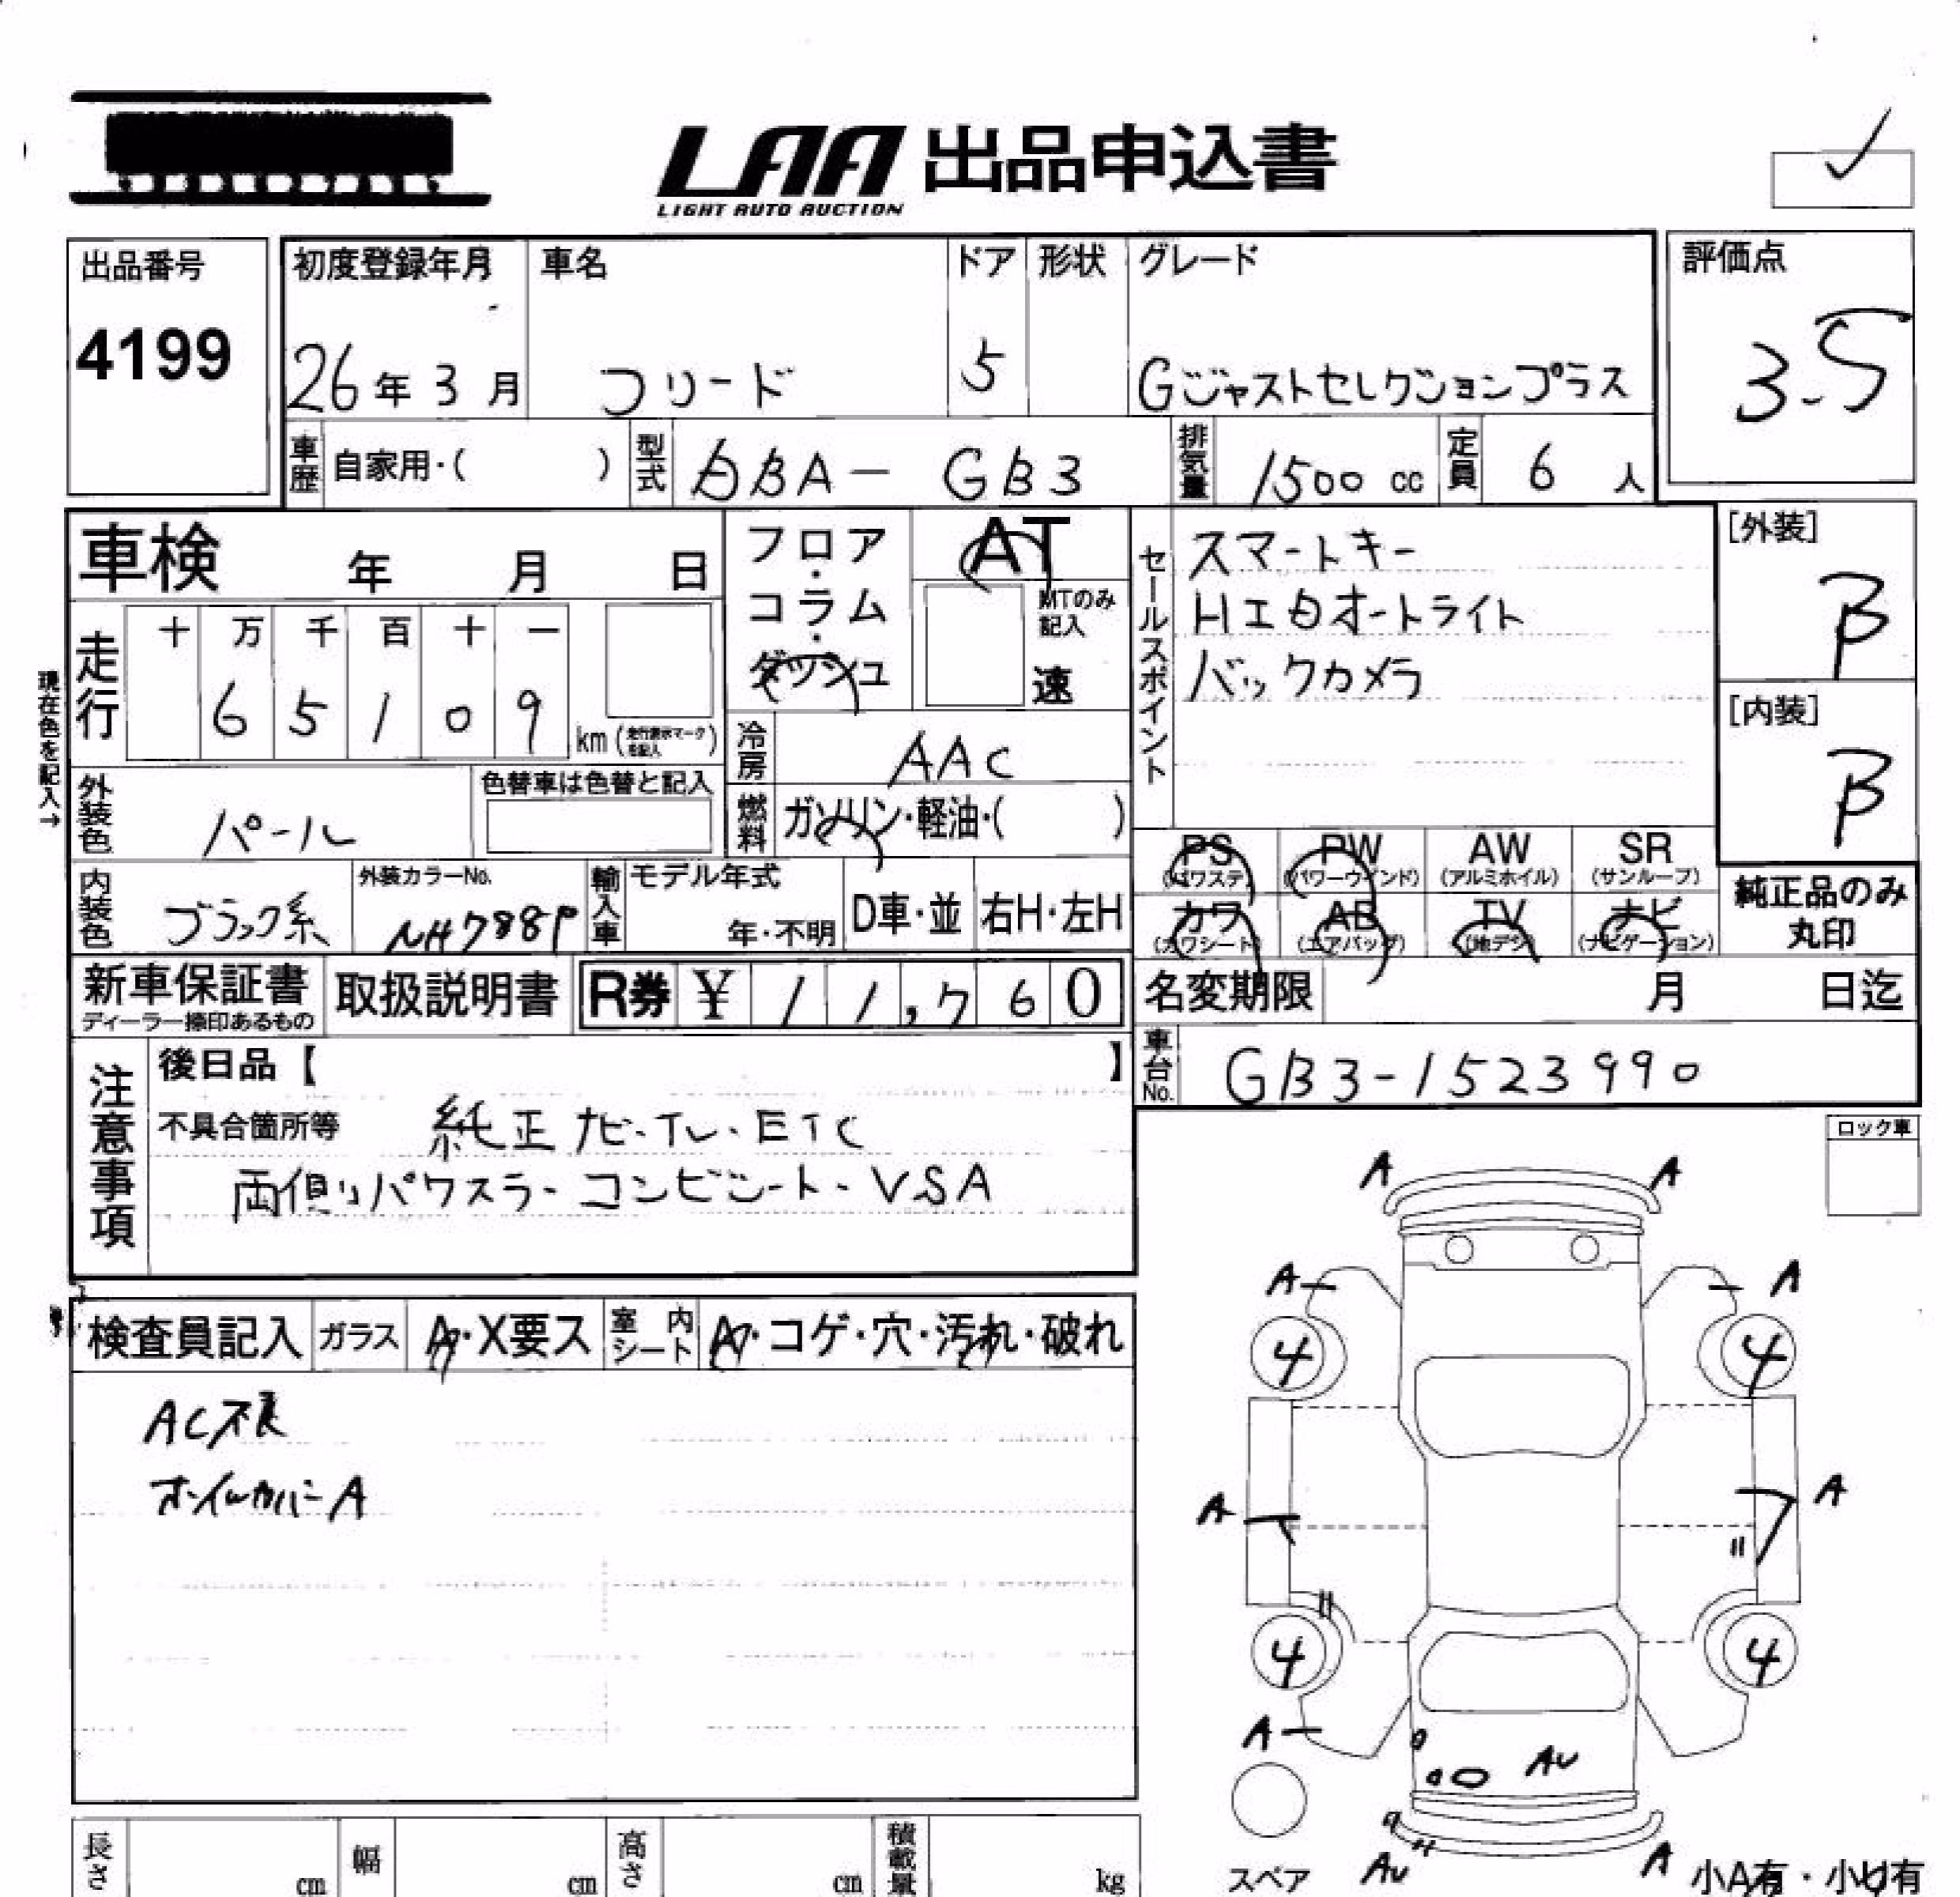 LAA 出品申込書
LIGHT AUTO AUCTION
出品番号
4199
初度登録年月
26年3月
車名
フリード
ドア
5
形状
グレード
Gジャストセレクションプラス
評価点
3.5
車歴
自家用・( )
型式
DBA-GB3
排気量
1500 cc
定員
6 人
車検 年 月 日
フロア・コラム・ダッシュ
AT
MTのみ記入
速
セールスポイント
スマートキー
HIDオートライト
バックカメラ
[外装]
B
[内装]
B
現在色を記入→
走行
十 万 千 百 十 一
6 5 1 0 9 km
冷房
AAC
燃料
ガソリン・軽油・( )
外装色
パール
色替車は色替と記入
内装色
ブラック系
外装カラーNo.
NH788P
輸入車
モデル年式
年・不明
D車・並
右H・左H
PS (パワステ)
PW (パワーウインド)
AW (アルミホイル)
SR (サンルーフ)
カワ (カワシート)
AB (エアバッグ)
TV (地デジ)
ナビ (ナビゲーション)
純正品のみ丸印
新車保証書
ディーラー捺印あるもの
取扱説明書
R券 ¥11,760
名変期限 月 日迄
車台No.
GB3-1523990
注意事項
後日品【 】
不具合箇所等 純正ナビ・TV・ETC
両側パワスラ・コンビシート・VSA
ロック車
検査員記入
ガラス
A・X要ス
室内シート
A・コゲ・穴・汚れ・破れ
AC不良
ホイルカバーA
A A
A A
4 4
A A
4 4
A
AU
AU A
スペア
小A有・小U有
長さ cm
幅 cm
高さ cm
積載量 kg